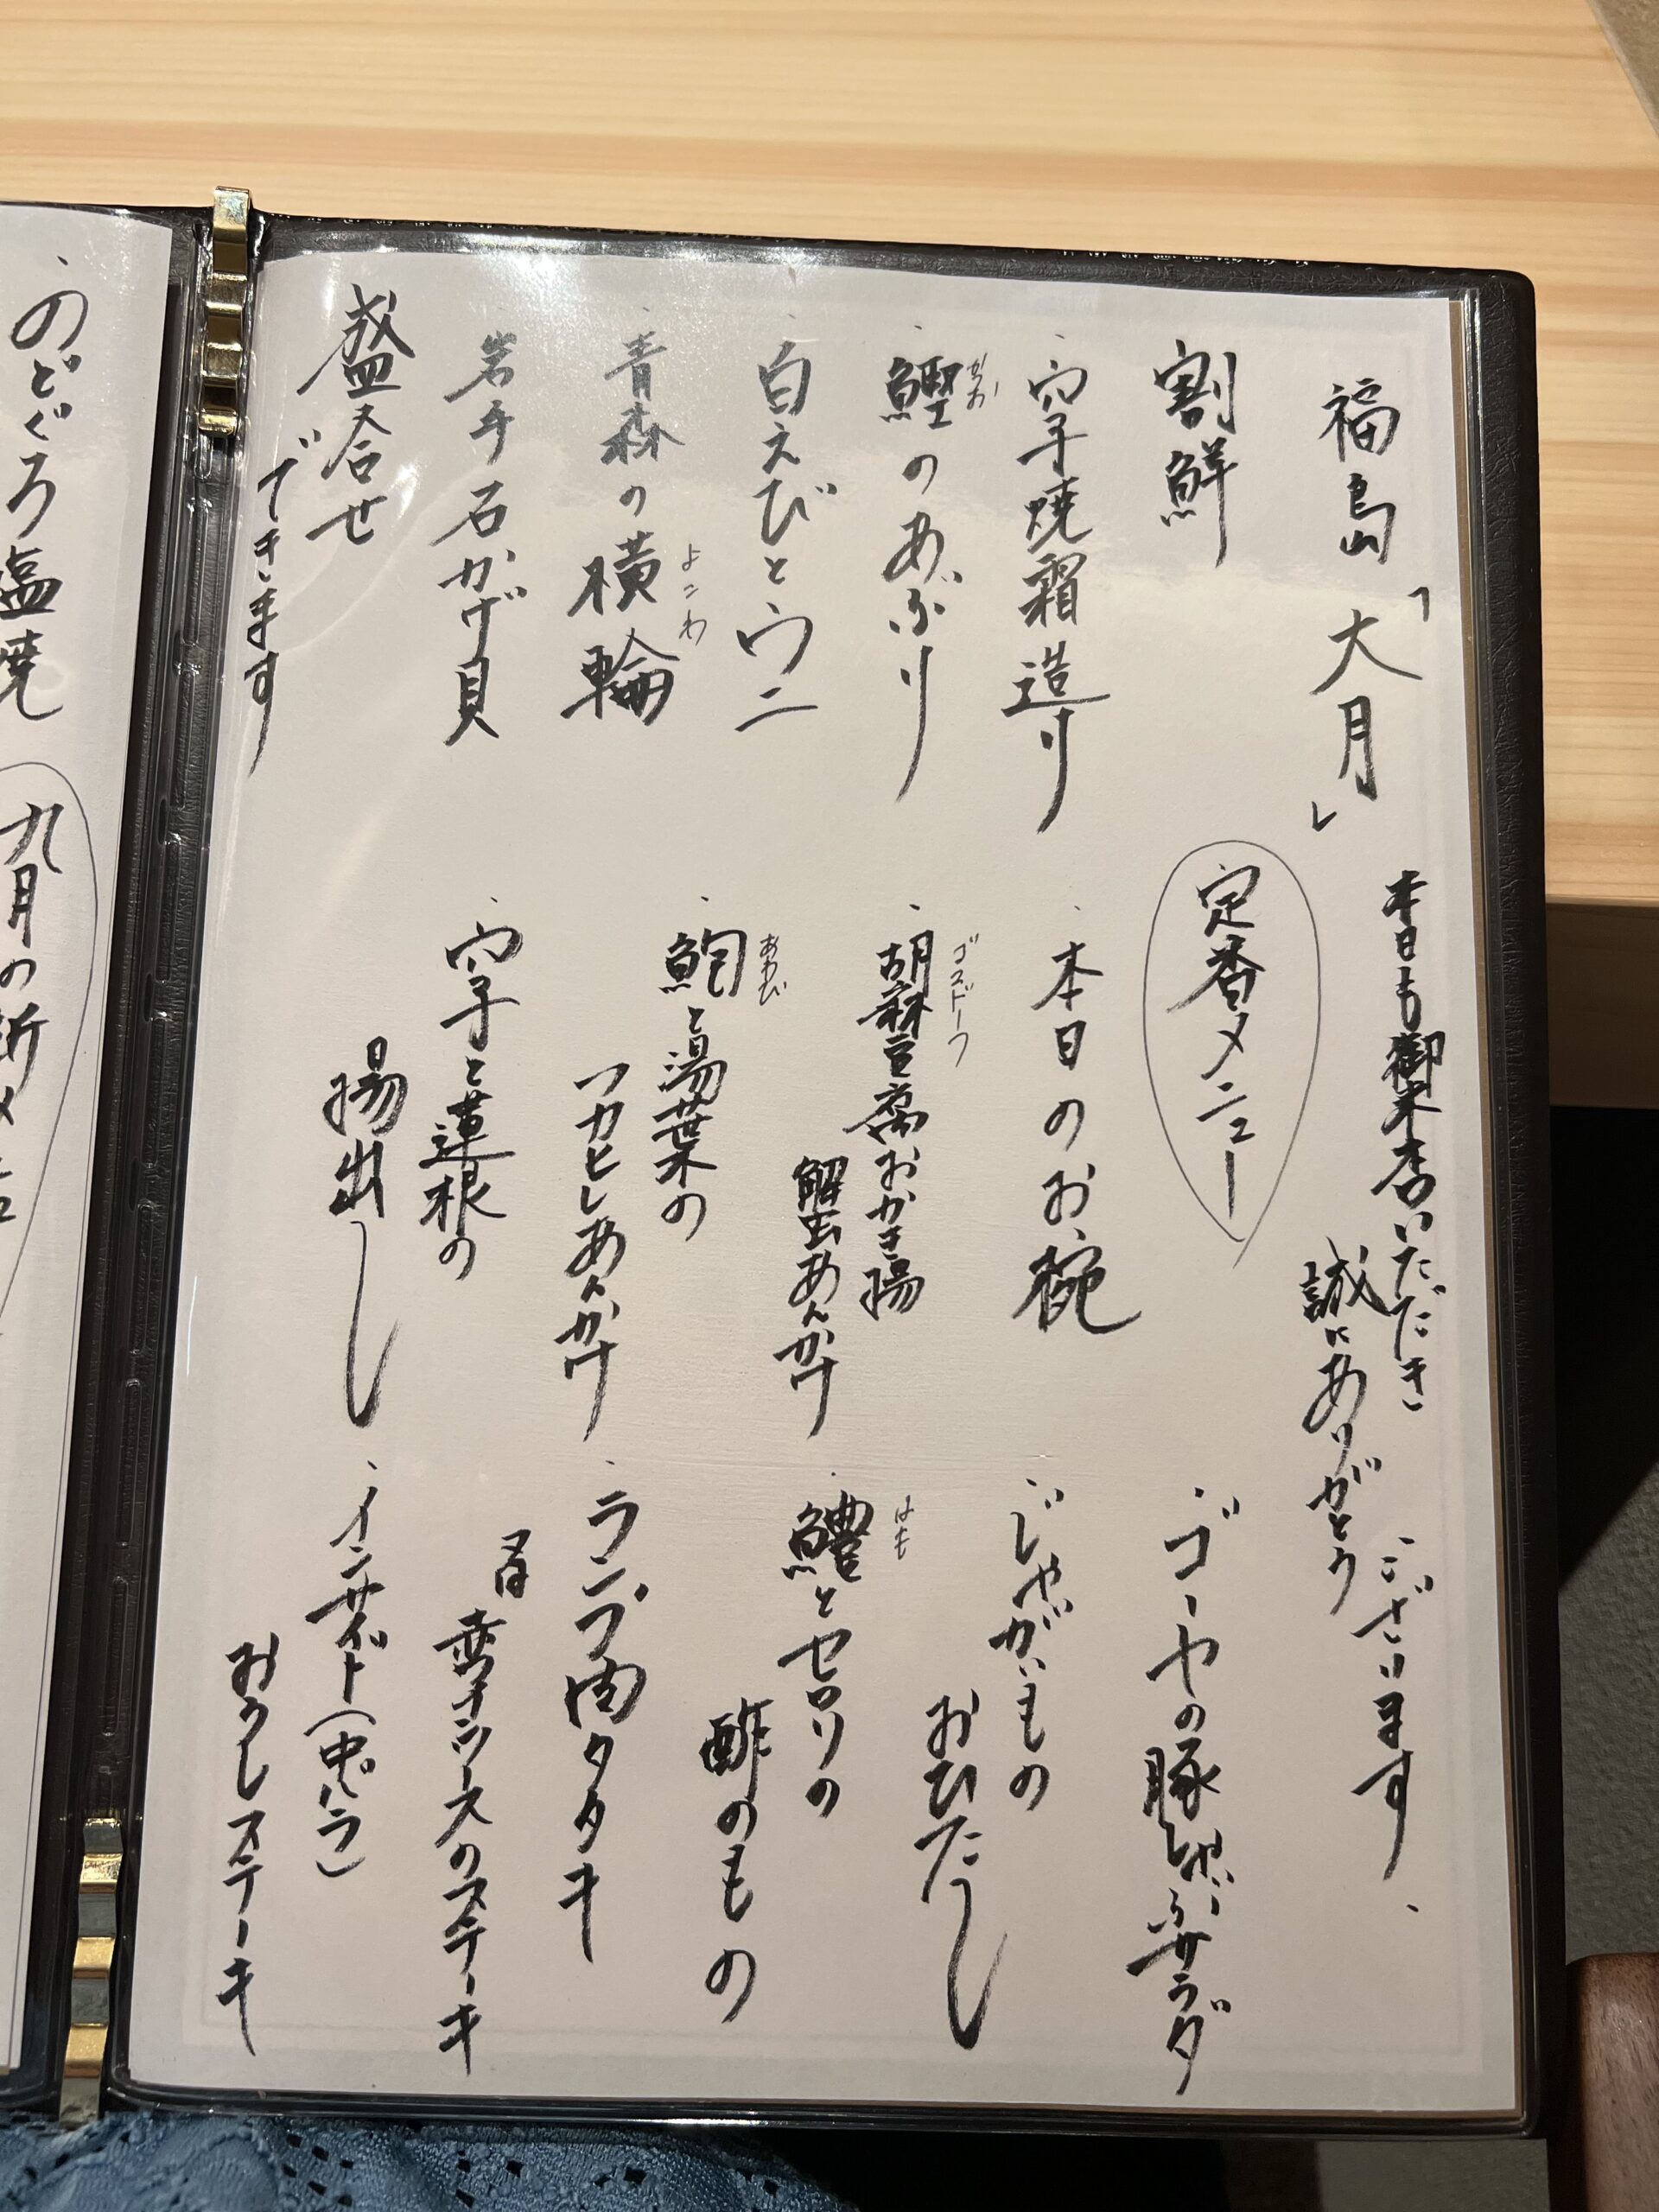 福島「大月」
本日も御来店いただき
誠にありがとう
ございます、
割鮮
・穴子焼霜造り
・鰹のあぶり
かつお
・白えびとウニ
・青森の横輪
よこわ
・岩手石かげ貝
盛合せ
できます
定番メニュー
・本日のお椀
・胡麻豆腐おかき揚
ゴマドーフ
蟹あんかけ
・鮑と湯葉の
あわび
フカヒレあんかけ
・穴子と蓮根の
揚出し
・ゴーヤの豚しゃぶサラダ
・じゃがいもの
おひたし
・鱧とセロリの
はも
酢のもの
・ランプ肉タタキ
又は
ソースのステーキ
・インサイド(中バラ)
おろしステーキ
・のどぐろ塩焼
九月の新メ